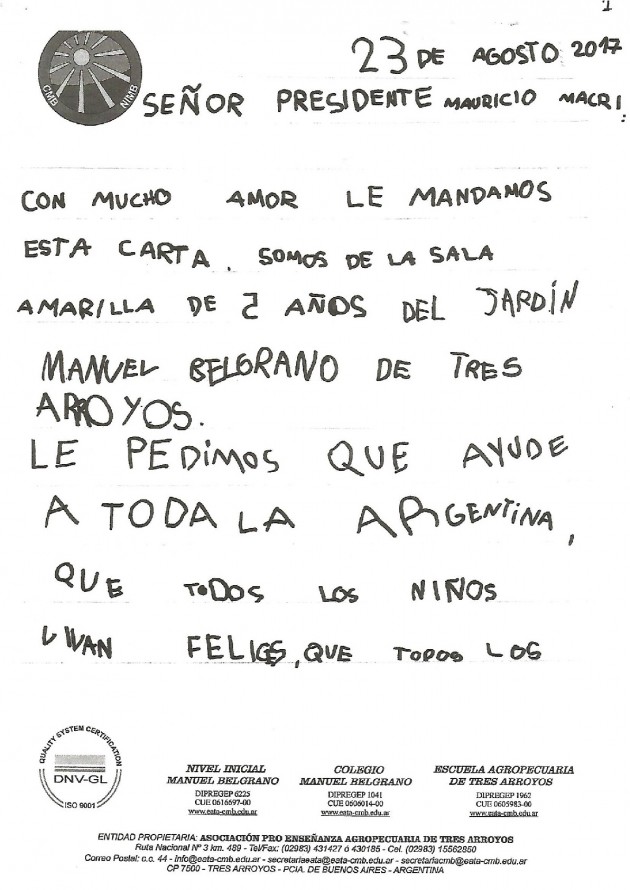 1
CMB NIMB
23 DE AGOSTO 2017
SEÑOR PRESIDENTE MAURICIO MACRI:
CON MUCHO AMOR LE MANDAMOS
ESTA CARTA. SOMOS DE LA SALA
AMARILLA DE 2 AÑOS DEL JARDÍN
MANUEL BELGRANO DE TRES
ARROYOS.
LE PEDIMOS QUE AYUDE
A TODA LA ARGENTINA,
QUE TODOS LOS NIÑOS
VIVAN FELICES, QUE TODOS LOS
QUALITY SYSTEM CERTIFICATION
DNV-GL
ISO 9001
NIVEL INICIAL
MANUEL BELGRANO
DIPREGEP 6225
CUE 0616697-00
www.eata-cmb.edu.ar
COLEGIO
MANUEL BELGRANO
DIPREGEP 1041
CUE 0606014-00
www.eata-cmb.edu.ar
ESCUELA AGROPECUARIA
DE TRES ARROYOS
DIPREGEP 1962
CUE 0605983-00
www.eata-cmb.edu.ar
ENTIDAD PROPIETARIA: ASOCIACIÓN PRO ENSEÑANZA AGROPECUARIA DE TRES ARROYOS
Ruta Nacional Nº 3 km. 489 - Tel/Fax: (02983) 431427 ó 430185 - Cel. (02983) 15562850
Correo Postal: c.c. 44 - info@eata-cmb.edu.ar - secretariaeata@eata-cmb.edu.ar - secretariacmb@eata-cmb.edu.ar
CP 7500 - TRES ARROYOS - PCIA. DE BUENOS AIRES - ARGENTINA